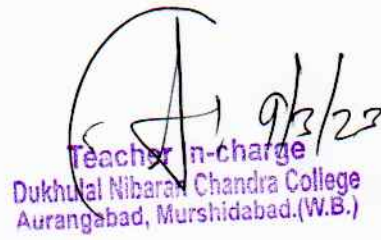 9/3/23
Teacher In-charge
Dukhulal Nibaran Chandra College
Aurangabad, Murshidabad.(W.B.)